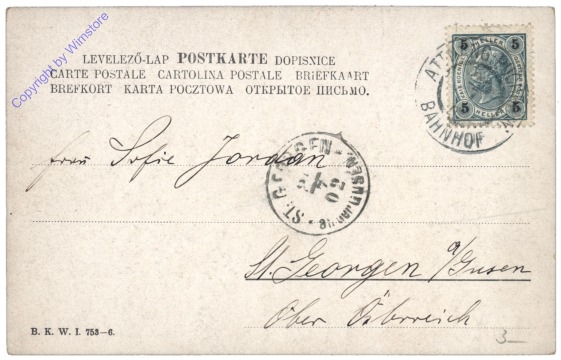 Copyright by Wimstore
LEVELEZŐ-LAP POSTKARTE DOPISNICE
CARTE POSTALE CARTOLINA POSTALE BRIEFKAART
BREFKORT KARTA POCZTOWA ОТКРЫТОЕ ПИСЬМО.
5 HELLER 5
5 HELLER 5
BAHNHOF
Frau Sofie Jordan
ST. GEORGEN
02
St. Georgen a/Gusen
Ober Österreich
B. K. W. I. 753-6.
3